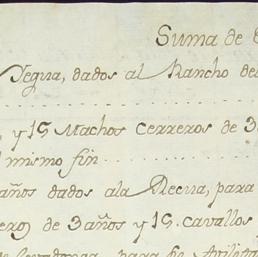 Suma de
Yegua, dados al Rancho de
y 15 Machos Cerreros de 3
mismo fin
años dados ala Recua, para
de 3 años y 15. cavallos
para